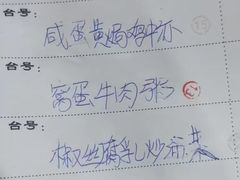 台号:
咸蛋黄焗鸡中
台号:
窝蛋牛肉粥
台号:
椒丝腐乳炒 菜